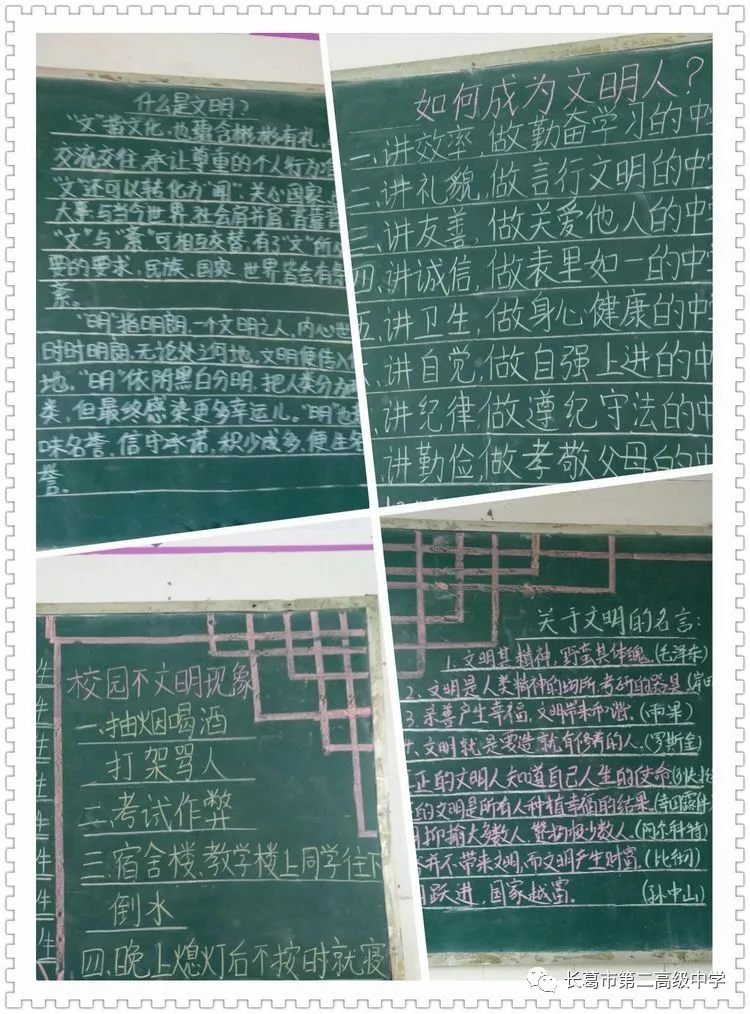 什么是文明？
"文"皆文化，也蕴含彬彬有礼，
交流交往，承让尊重的个人行为
"文"还可以转化为"闻"，关心国家
大事，与当今世界，社会肩并肩，
"文"与"紊"可相互交替，有了"文"所
要的要求，民族、国家、世界皆会有
紊。
"明"指明朗，一个文明之人，内心世
时时明朗，无论处之何地，文明便传入
地，"明"依附黑白分明，把人类分为
类，但最终感染更多幸运儿。"明"也
味名誉，信守承诺，积少成多，便生名
誉。
如何成为文明人？
一、讲效率，做勤奋学习的中
二、讲礼貌，做言行文明的中学
三、讲友善，做关爱他人的中学
四、讲诚信，做表里如一的中学
五、讲卫生，做身心健康的中
讲自觉，做自强上进的中
讲纪律做遵纪守法的中
讲勤俭，做孝敬父母的中
校园不文明现象
一、抽烟喝酒
打架骂人
二、考试作弊
三、宿舍楼、教学楼上同学往下
倒水
四、晚上熄灯后不按时就寝
生
生
生
生
生
生
生
关于文明的名言：
1.文明其精神，野蛮其体魄。(毛泽东)
2.文明是人类精神的场所，
3.亲善产生幸福，文明带来和谐。(雨果)
文明就是要造就有修养的人。(罗斯金)
正的文明人知道自己人生的使命
的文明是所有人种植幸福的结果。
揶揄大多数人，赞扬极少数人。(阿尔科特)
并不带来文明，而文明产生财富。(比彻)
跃进，国家越富。(孙中山)
长葛市第二高级中学